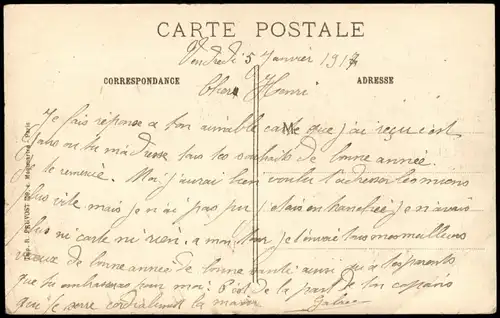 CARTE POSTALE
Vendredi 5 Janvier 1917
CORRESPONDANCE
ADRESSE
Cher Henri
Je fais réponse a ton aimable carte que j'ai reçu c'est
dans ou tu m'adresse tous tes souhaits de bonne année.
te remercie. Moi j'aurai bien voulu t'adresser les miens
plus vite mais je n'ai pas pu j'étais en tranchée je n'avais
plus ni carte ni rien. a mon tour je t'envoie tous mes meilleurs
vœux de bonne année de bonne santé ainsi que a tes parents
que tu embrasseras pour moi. C'est de la part de ton copain
qui te serre cordialement la main
M